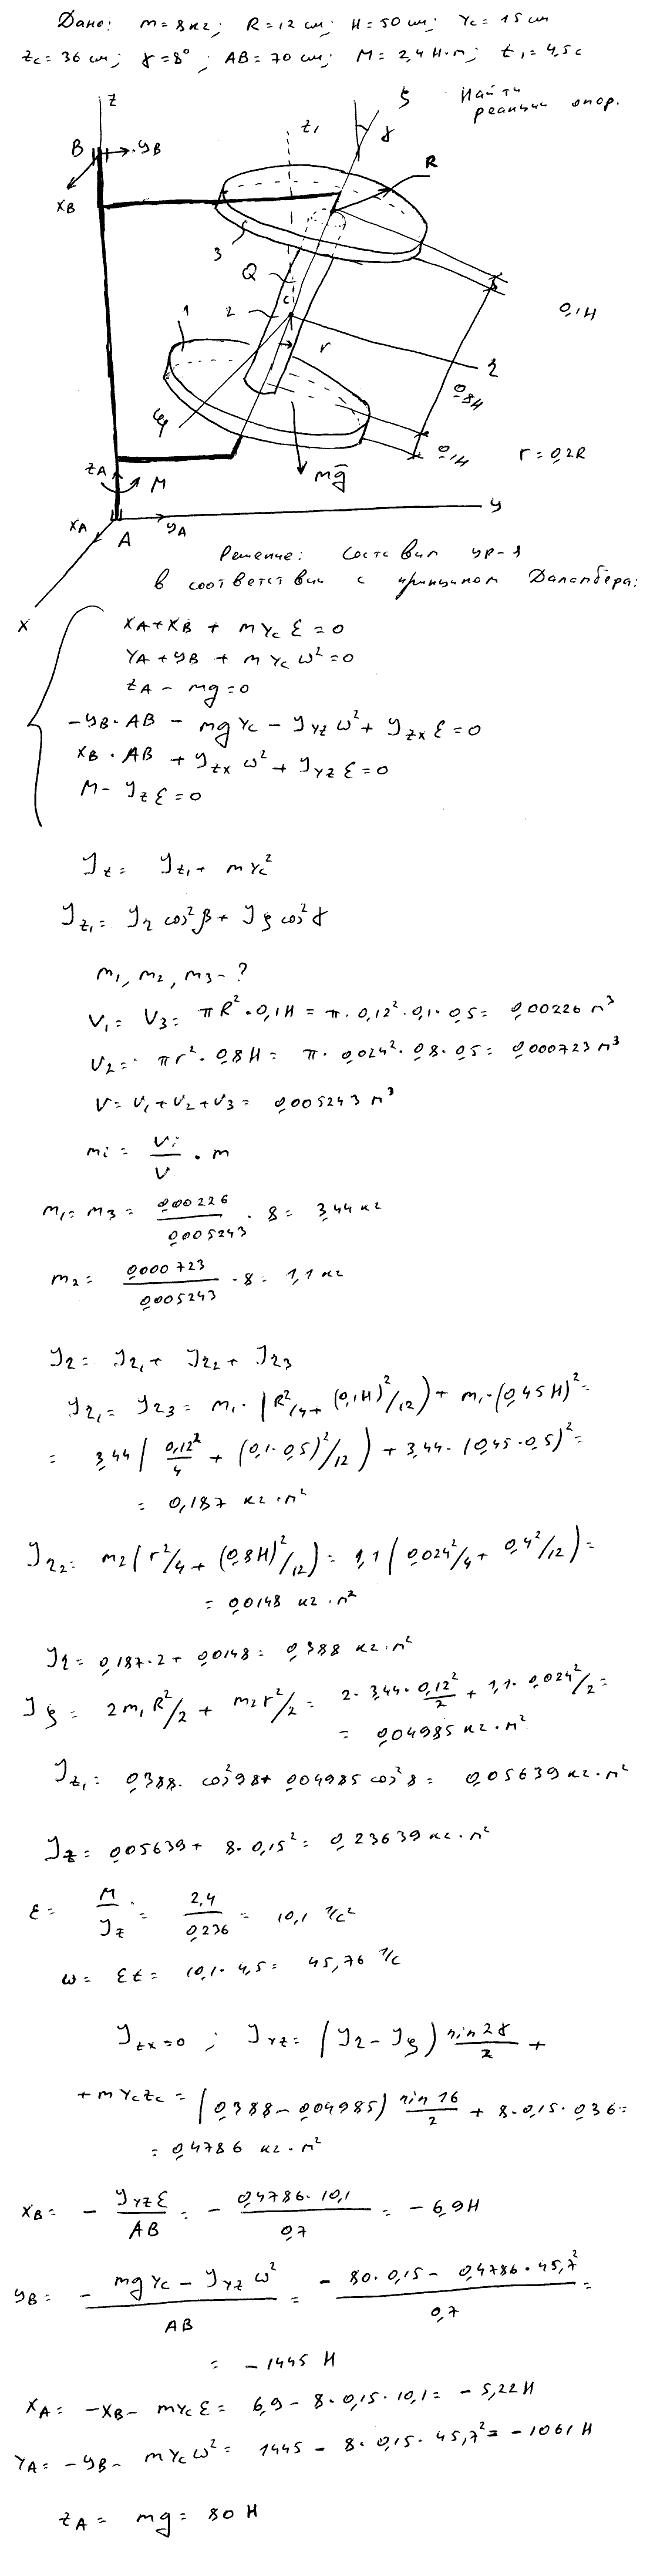 Дано: m = 8 кг; R = 12 см; H = 50 см; Yc = 15 см
Zc = 36 см; γ = 8°; AB = 70 см; M = 2,4 Н·м; t₁ = 4,5 с
Найти
реакции опор.
z
ζ
z₁
γ
B
yB
xB
R
3
Q
0,1H
1
2
c
r
η
0,8H
ξ
0,1H
r = 0,2R
zA
M
mg̅
xA
A
yA
y
x
Решение: Составим ур-я
в соответствии с принципом Даламбера:
XA + XB + mYc ε = 0
YA + yB + mYc ω² = 0
ZA - mg = 0
-yB·AB - mgYc - Jyz ω² + Jzx ε = 0
XB·AB + Jzx ω² + Jyz ε = 0
M - Jz ε = 0
Jz = Jz₁ + mYc²
Jz₁ = Jη cos²β + Jζ cos²γ
m₁, m₂, m₃ - ?
V₁ = V₃ = πR²·0,1H = π·0,12²·0,1·0,5 = 0,00226 м³
V₂ = πr²·0,8H = π·0,024²·0,8·0,5 = 0,000723 м³
V = V₁ + V₂ + V₃ = 0,005243 м³
mi = Vi/V · m
m₁ = m₃ = 0,00226/0,005243 · 8 = 3,44 кг
m₂ = 0,000723/0,005243 · 8 = 1,1 кг
Jη = Jη₁ + Jη₂ + Jη₃
Jη₁ = Jη₃ = m₁·(R²/4 + (0,1H)²/12) + m₁·(0,45H)² =
= 3,44(0,12²/4 + (0,1·0,5)²/12) + 3,44·(0,45·0,5)² =
= 0,187 кг·м²
Jη₂ = m₂(r²/4 + (0,8H)²/12) = 1,1(0,024²/4 + 0,4²/12) =
= 0,0148 кг·м²
Jη = 0,187·2 + 0,0148 = 0,388 кг·м²
Jζ = 2m₁R²/2 + m₂r²/2 = 2·3,44·0,12²/2 + 1,1·0,024²/2 =
= 0,04985 кг·м²
Jz₁ = 0,388·cos²98 + 0,04985 cos²8 = 0,05639 кг·м²
Jz = 0,05639 + 8·0,15² = 0,23639 кг·м²
ε = M/Jz = 2,4/0,236 = 10,1 1/с²
ω = εt = 10,1·4,5 = 45,76 1/с
Jzx = 0; Jyz = (Jη - Jζ) sin2γ/2 +
+ mYcZc = (0,388 - 0,04985) sin16/2 + 8·0,15·0,36 =
= 0,4786 кг·м²
XB = - Jyz ε/AB = - 0,4786·10,1/0,7 = -6,9 Н
yB = - mgYc - Jyz ω²/AB = -80·0,15 - 0,4786·45,7²/0,7 =
= -1445 Н
XA = -XB - mYc ε = 6,9 - 8·0,15·10,1 = -5,22 Н
YA = -yB - mYc ω² = 1445 - 8·0,15·45,7² = -1061 Н
ZA = mg = 80 Н